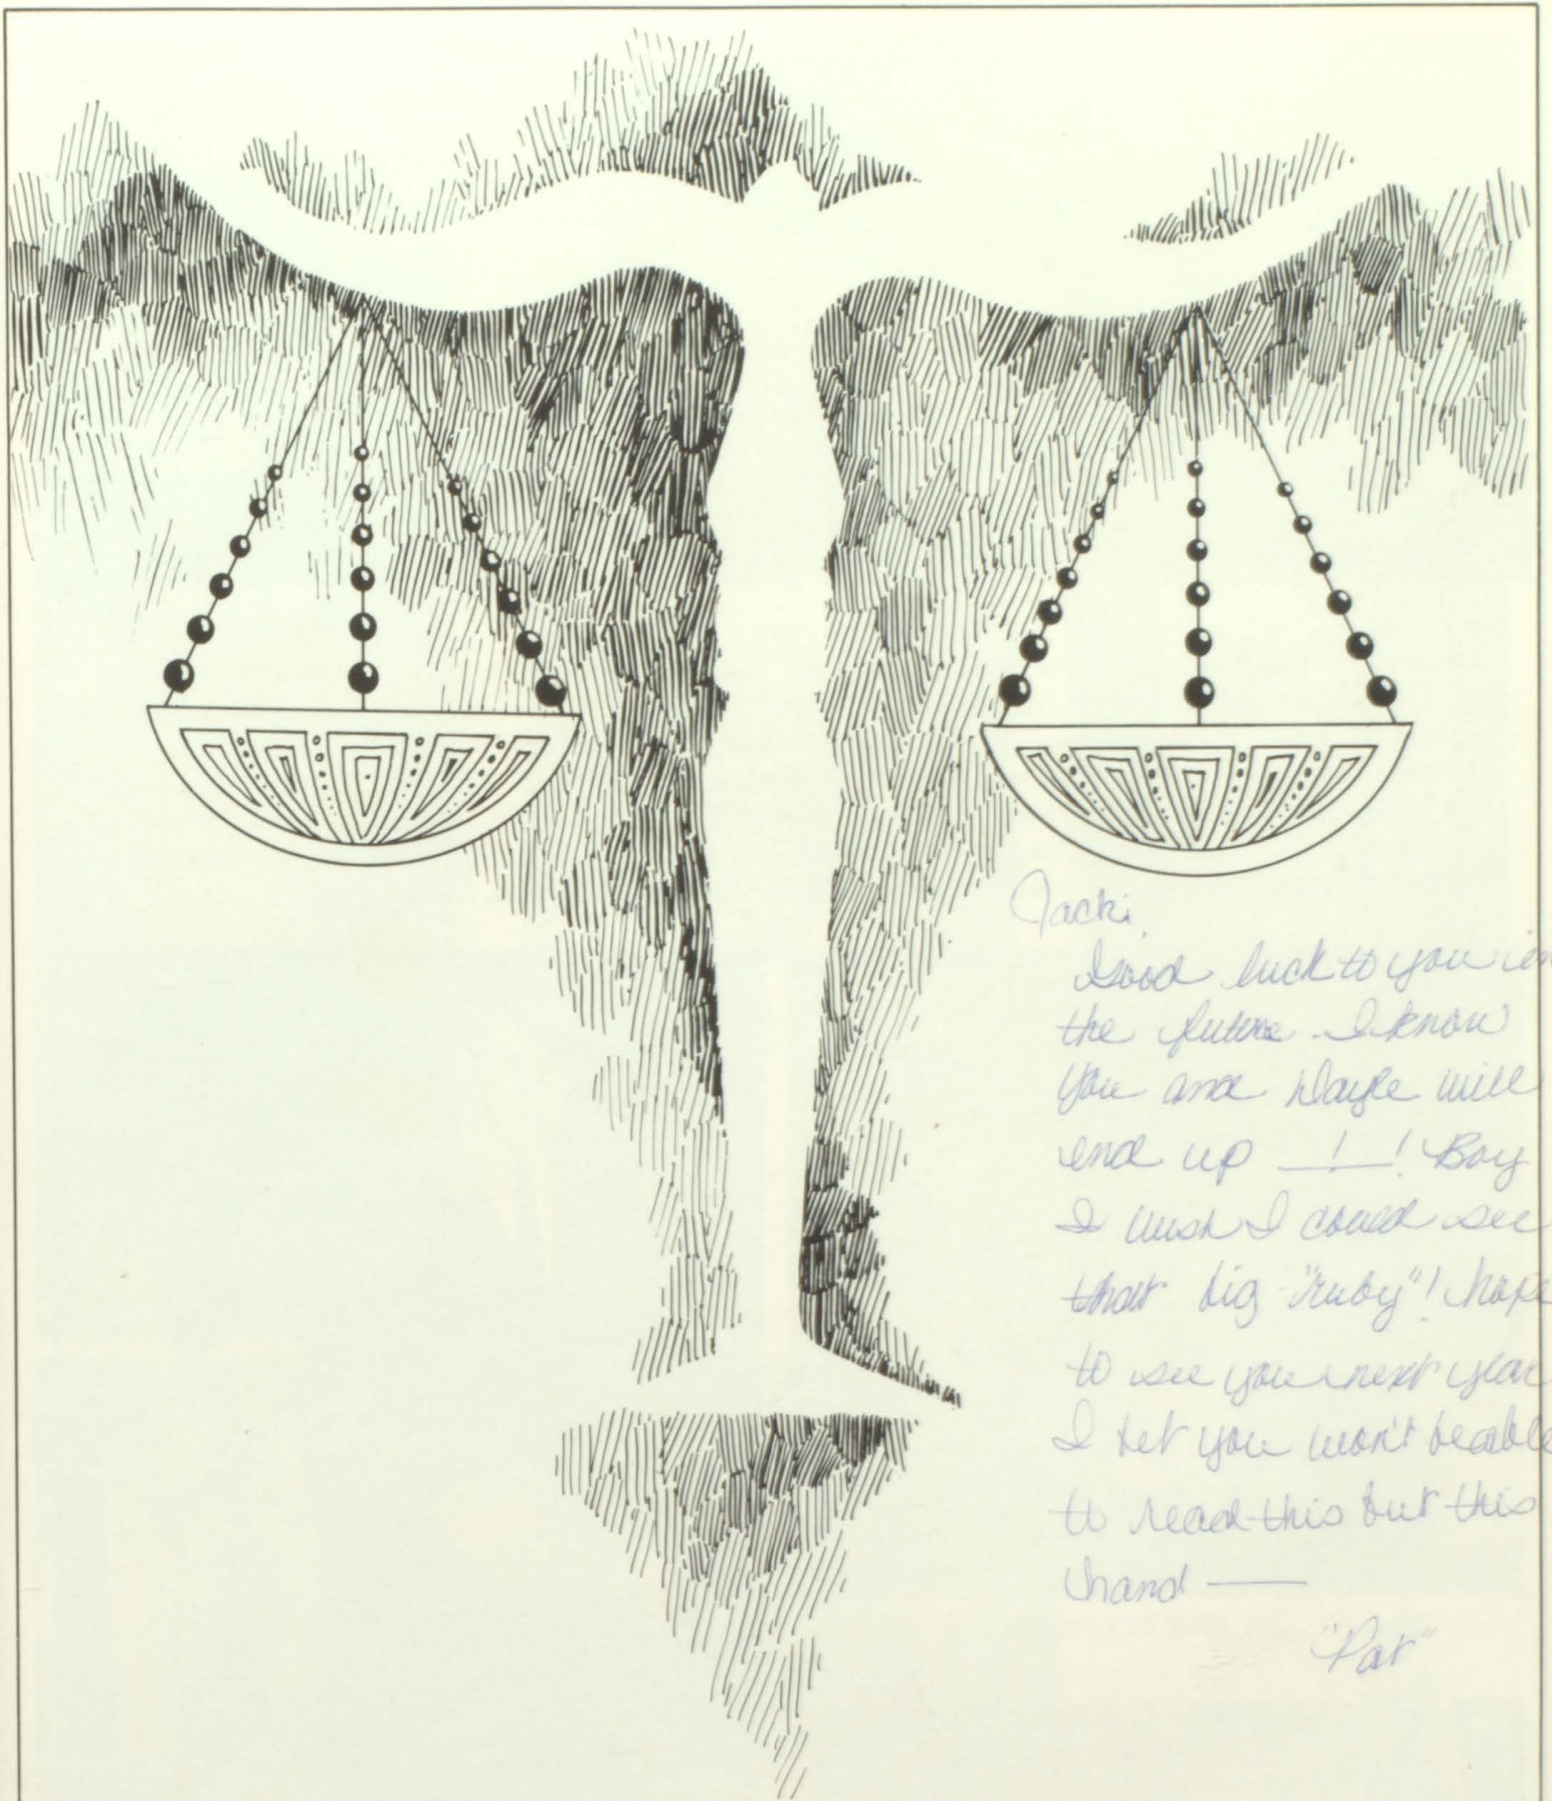 Jacki,
Good luck to you in
the future. I know
you and Dayle will
end up __!__! Boy
I wish I could see
that big "ruby"! hope
to see you next year
I bet you won't be able
to read this but this
hand —
"Pat"